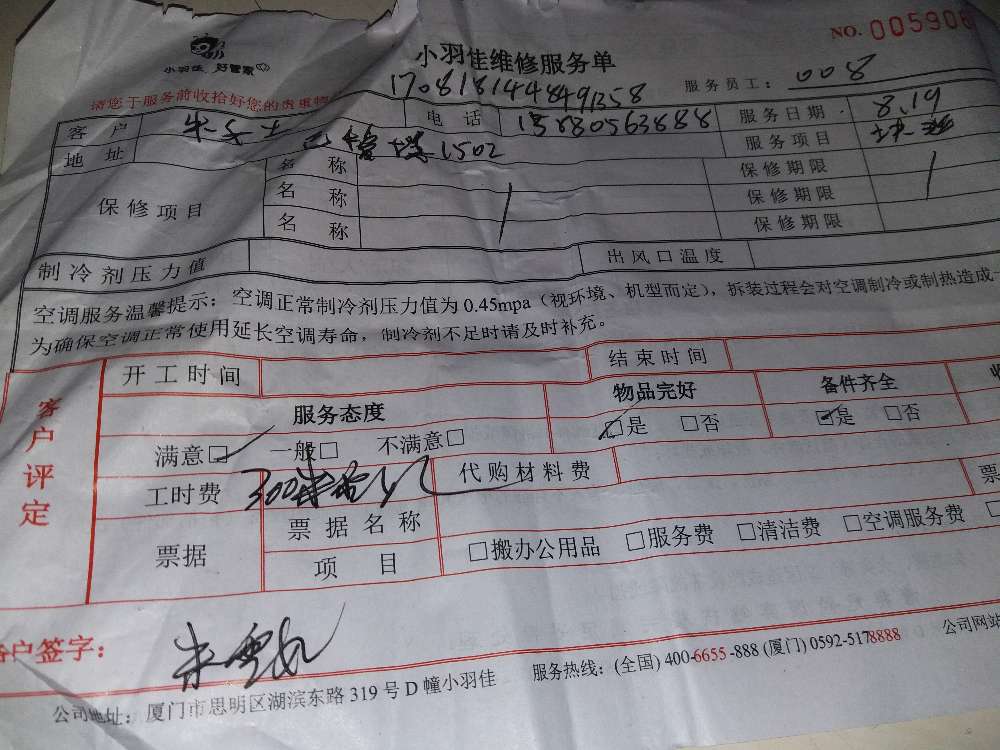 NO. 005906
小羽佳 好管家
小羽佳维修服务单
请您于服务前收拾好您的贵重物
1708181448491358
服务员工: 008
客户
电话 13880563888
服务日期 8.19
地址
1502
服务项目
保修项目
名称
保修期限
名称
保修期限
名称
保修期限
制冷剂压力值
出风口温度
空调服务温馨提示:空调正常制冷剂压力值为0.45mpa(视环境、机型而定),拆装过程会对空调制冷或制热造成
为确保空调正常使用延长空调寿命,制冷剂不足时请及时补充。
客户评定
开工时间
结束时间
服务态度
物品完好
备件齐全
满意□ 一般□ 不满意□
□是 □否
□是 □否
工时费 300
代购材料费
票
票据
票据名称
项目
□搬办公用品 □服务费 □清洁费 □空调服务费
客户签字:
公司地址:厦门市思明区湖滨东路319号D幢小羽佳
服务热线:(全国) 400-6655-888 (厦门) 0592-5178888
公司网站